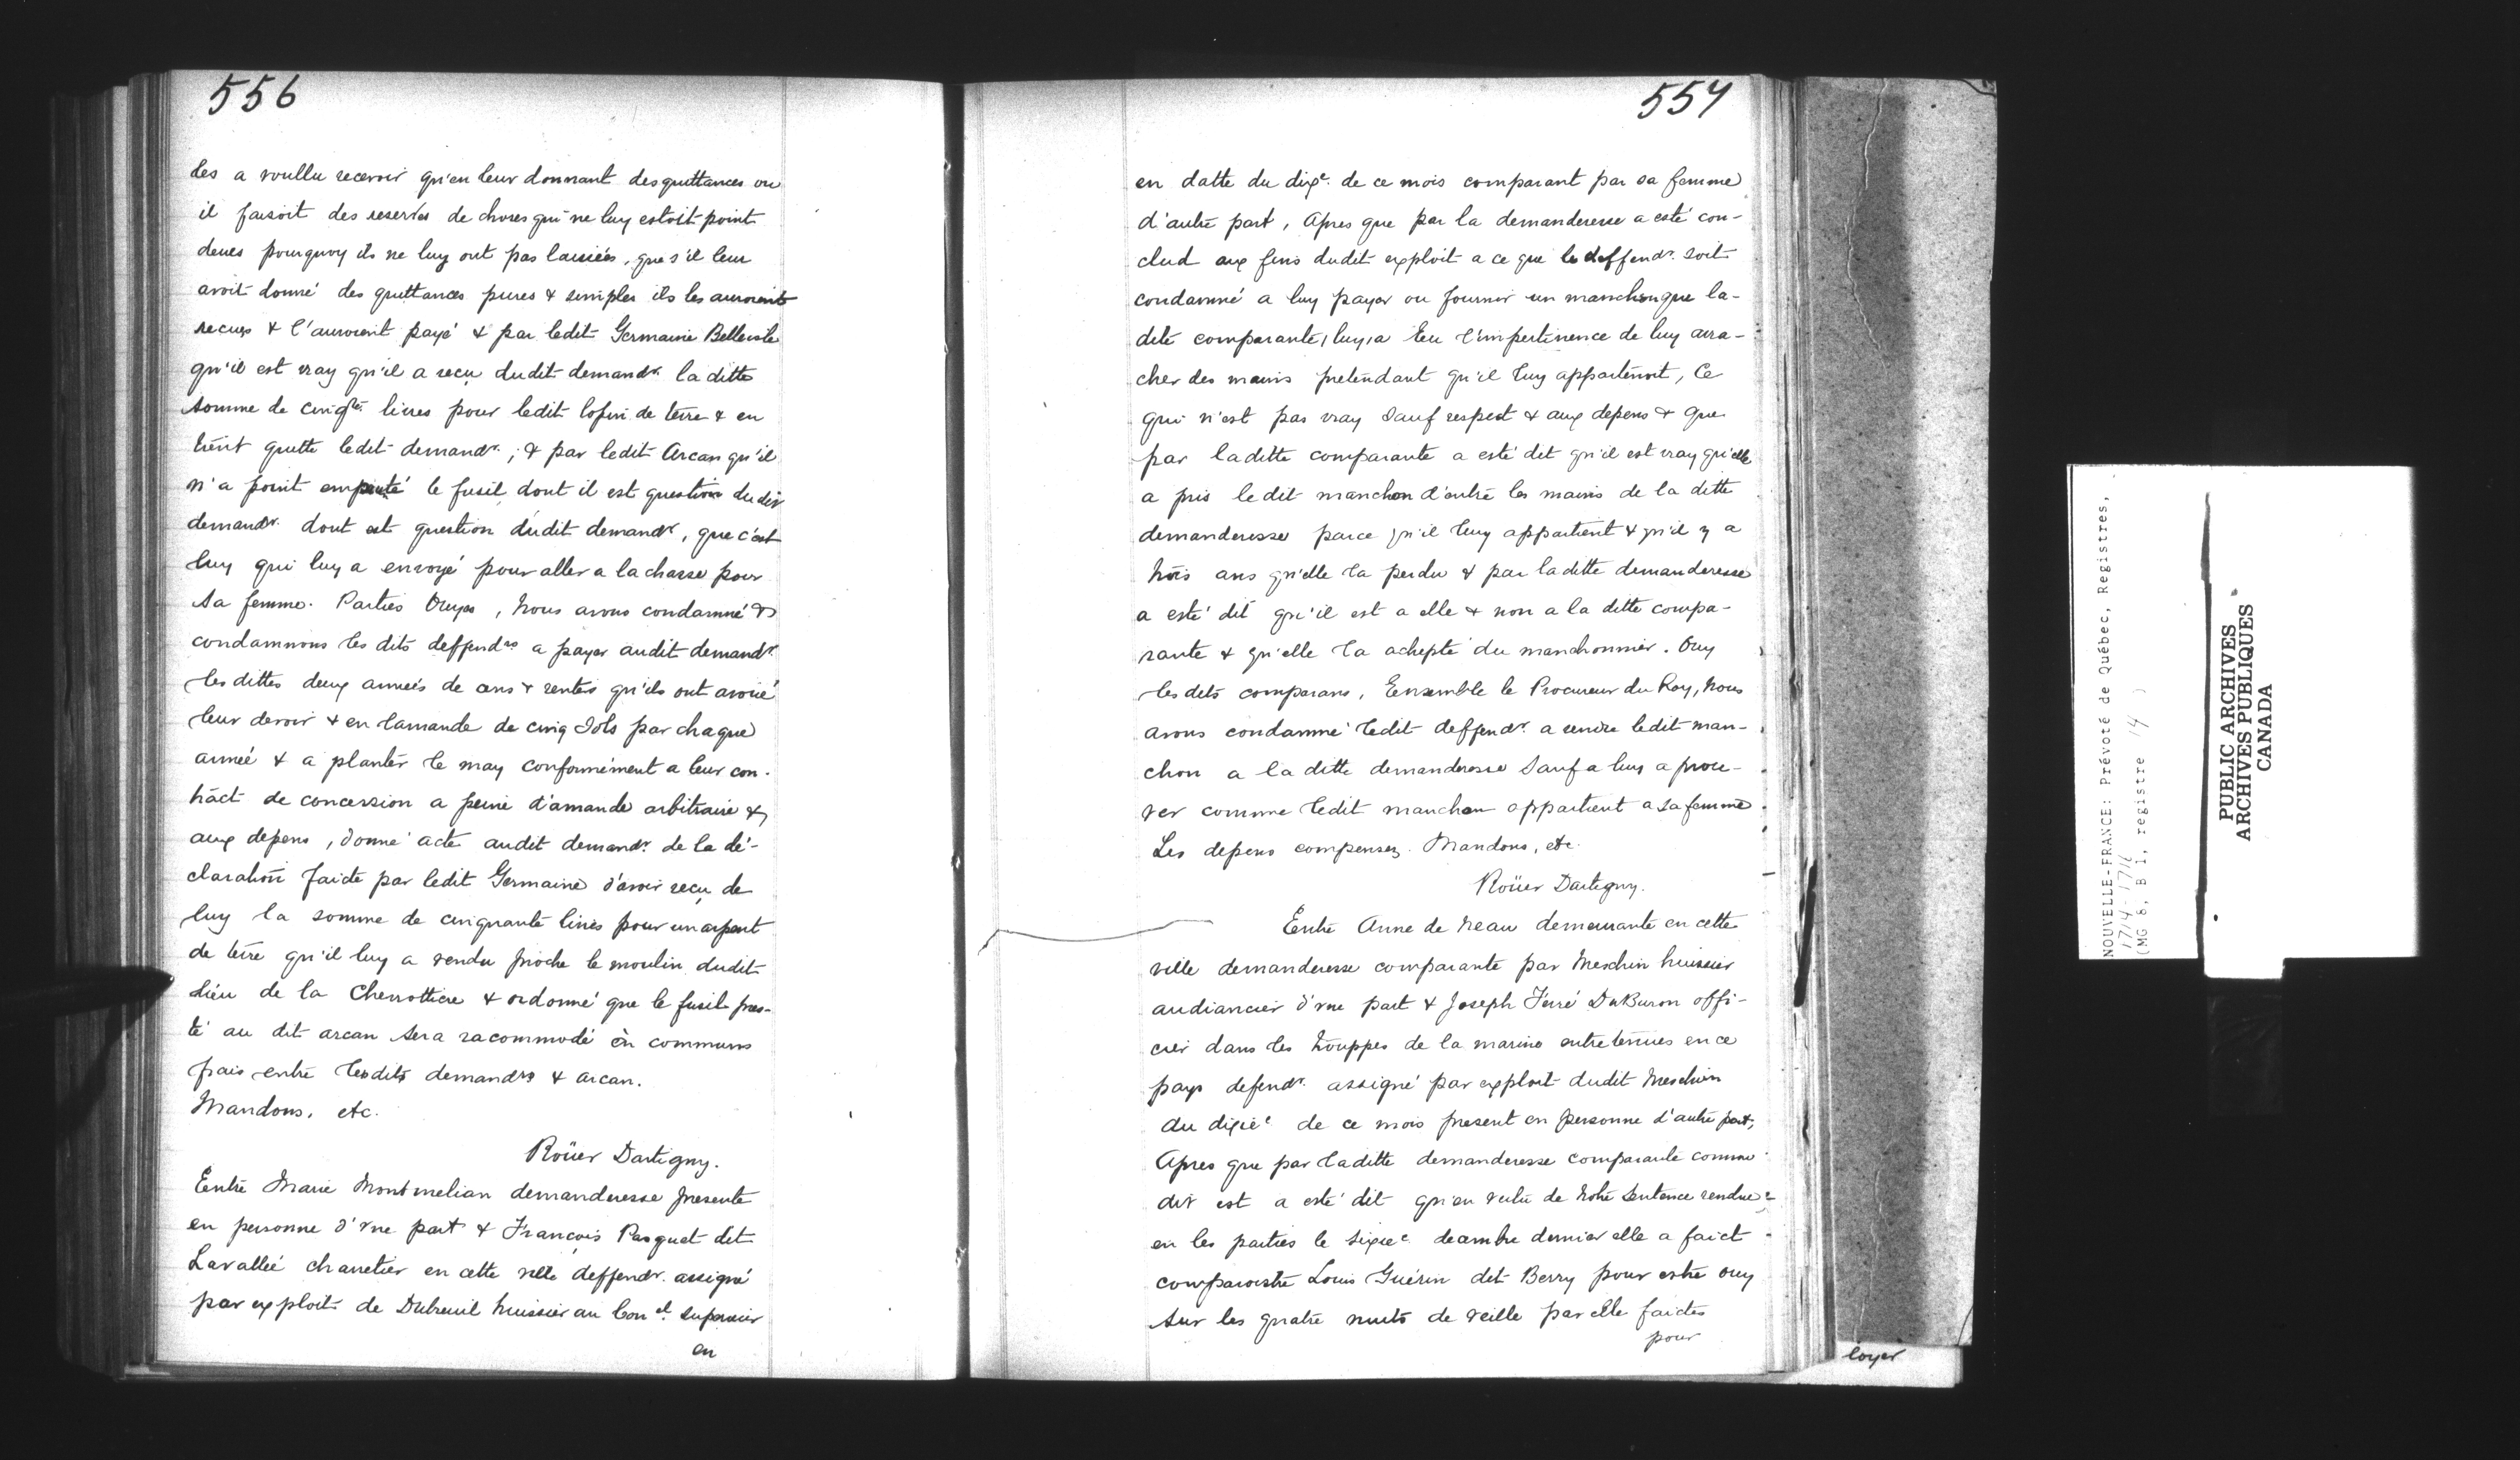 556
les a voullu recevoir qu'en leur donnant des quittances ou
il faisoit des reserves de choses qui ne luy estoit point
deues pourquoy ils ne luy ont pas laissées, que s'il leur
avoit donné des quittances pures & simples ils les auroient
recues & l'auroient payé & par ledit Germaine Belleisle
qu'il est vray qu'il a reçu dudit demandr. la ditte
somme de cinqte. livres pour ledit lopin de terre & en
tient quitte ledit demandr.; & par ledit Arcan qu'il
n'a point emprunté le fusil dont il est question dudit
demandr. dont est question dudit demandr, que c'est
luy qui luy a envoyé pour aller a la chasse pour
sa femme. Parties Ouyes, Nous avons condamné &
condamnons les dits deffendrs a payer audit demandr.
les dittes deux années de cens & rentes qu'ils ont avoué
leur devoir & en lamande de cinq sols par chaque
année & a planter le may conformement a leur con-
tract de concession a peine d'amande arbitraire &
aux depens, donné acte audit demandr. de la dé-
claration faicte par ledit Germaine d'avoir reçu de
luy la somme de cinquante livres pour un arpent
de terre qu'il luy a vendu proche le moulin dudit
lieu de la Chevrottiere & ordonné que le fusil pres-
té au dit arcan sera racommodé en communs
frais entre lesdits demandrs & arcan.
Mandons, etc.
Roüer Dartigny.
Entre Marie Montmelian demanderesse presente
en personne d'vne part & François Pasquet dit
Lavallée charretier en cette ville deffendr. assigné
par exploit de Dubreuil huissier au Conel. superieur
en
557
en datte du dixe. de ce mois comparant par sa femme
d'autre part, Apres que par la demanderesse a esté con-
clud aux fins dudit exploit a ce que le deffendr. soit
condamné a luy payer ou fournir un manchon que la-
dite comparante, luy, a Eu l'impertinence de luy arra-
cher des mains pretendant qu'il luy appartenoit, Ce
qui n'est pas vray Sauf respect & aux depens & que
par laditte comparante a esté dit qu'il est vray qu'elle
a pris ledit manchon d'entre les mains de la ditte
demanderesse parce qu'il luy appartient & qu'il y a
trois ans qu'elle la perdu & par laditte demanderesse
a esté dit qu'il est a elle & non a la ditte compa-
rante & qu'elle la achepté du manchonnier. Ouy
les dits comparans, Ensemble le Procureur du Roy, Nous
avons condamné ledit deffendr. a rendre ledit man-
chon a la ditte demanderesse Sauf a luy a prou-
ver comme ledit manchon appartient a sa femme
Les depens compensez. Mandons, etc.
Roüer Dartigny.
Entre Anne de Neau demeurante en cette
ville demanderesse comparante par Meschin huissier
audiancier d'vne part & Joseph Ferré DuBuron offi-
cier dans les trouppes de la marine entretenues en ce
pays defendr. assigné par exploit dudit Meschin
du dixiee de ce mois present en personne d'autre part,
Apres que par laditte demanderesse comparante comme
dit est a esté dit qu'en vertu de Notre Sentence rendue
en les parties le sixiee. decembre dernier elle a faict
comparoistre Louis Guérin dit Berry pour estre ouy
sur les quatre nuits de veille par elle faictes
pour
loyer
NOUVELLE-FRANCE: Prévoté de Québec, Registres,
1714-1716
(MG 8, B 1, registre 14 )
PUBLIC ARCHIVES
ARCHIVES PUBLIQUES
CANADA